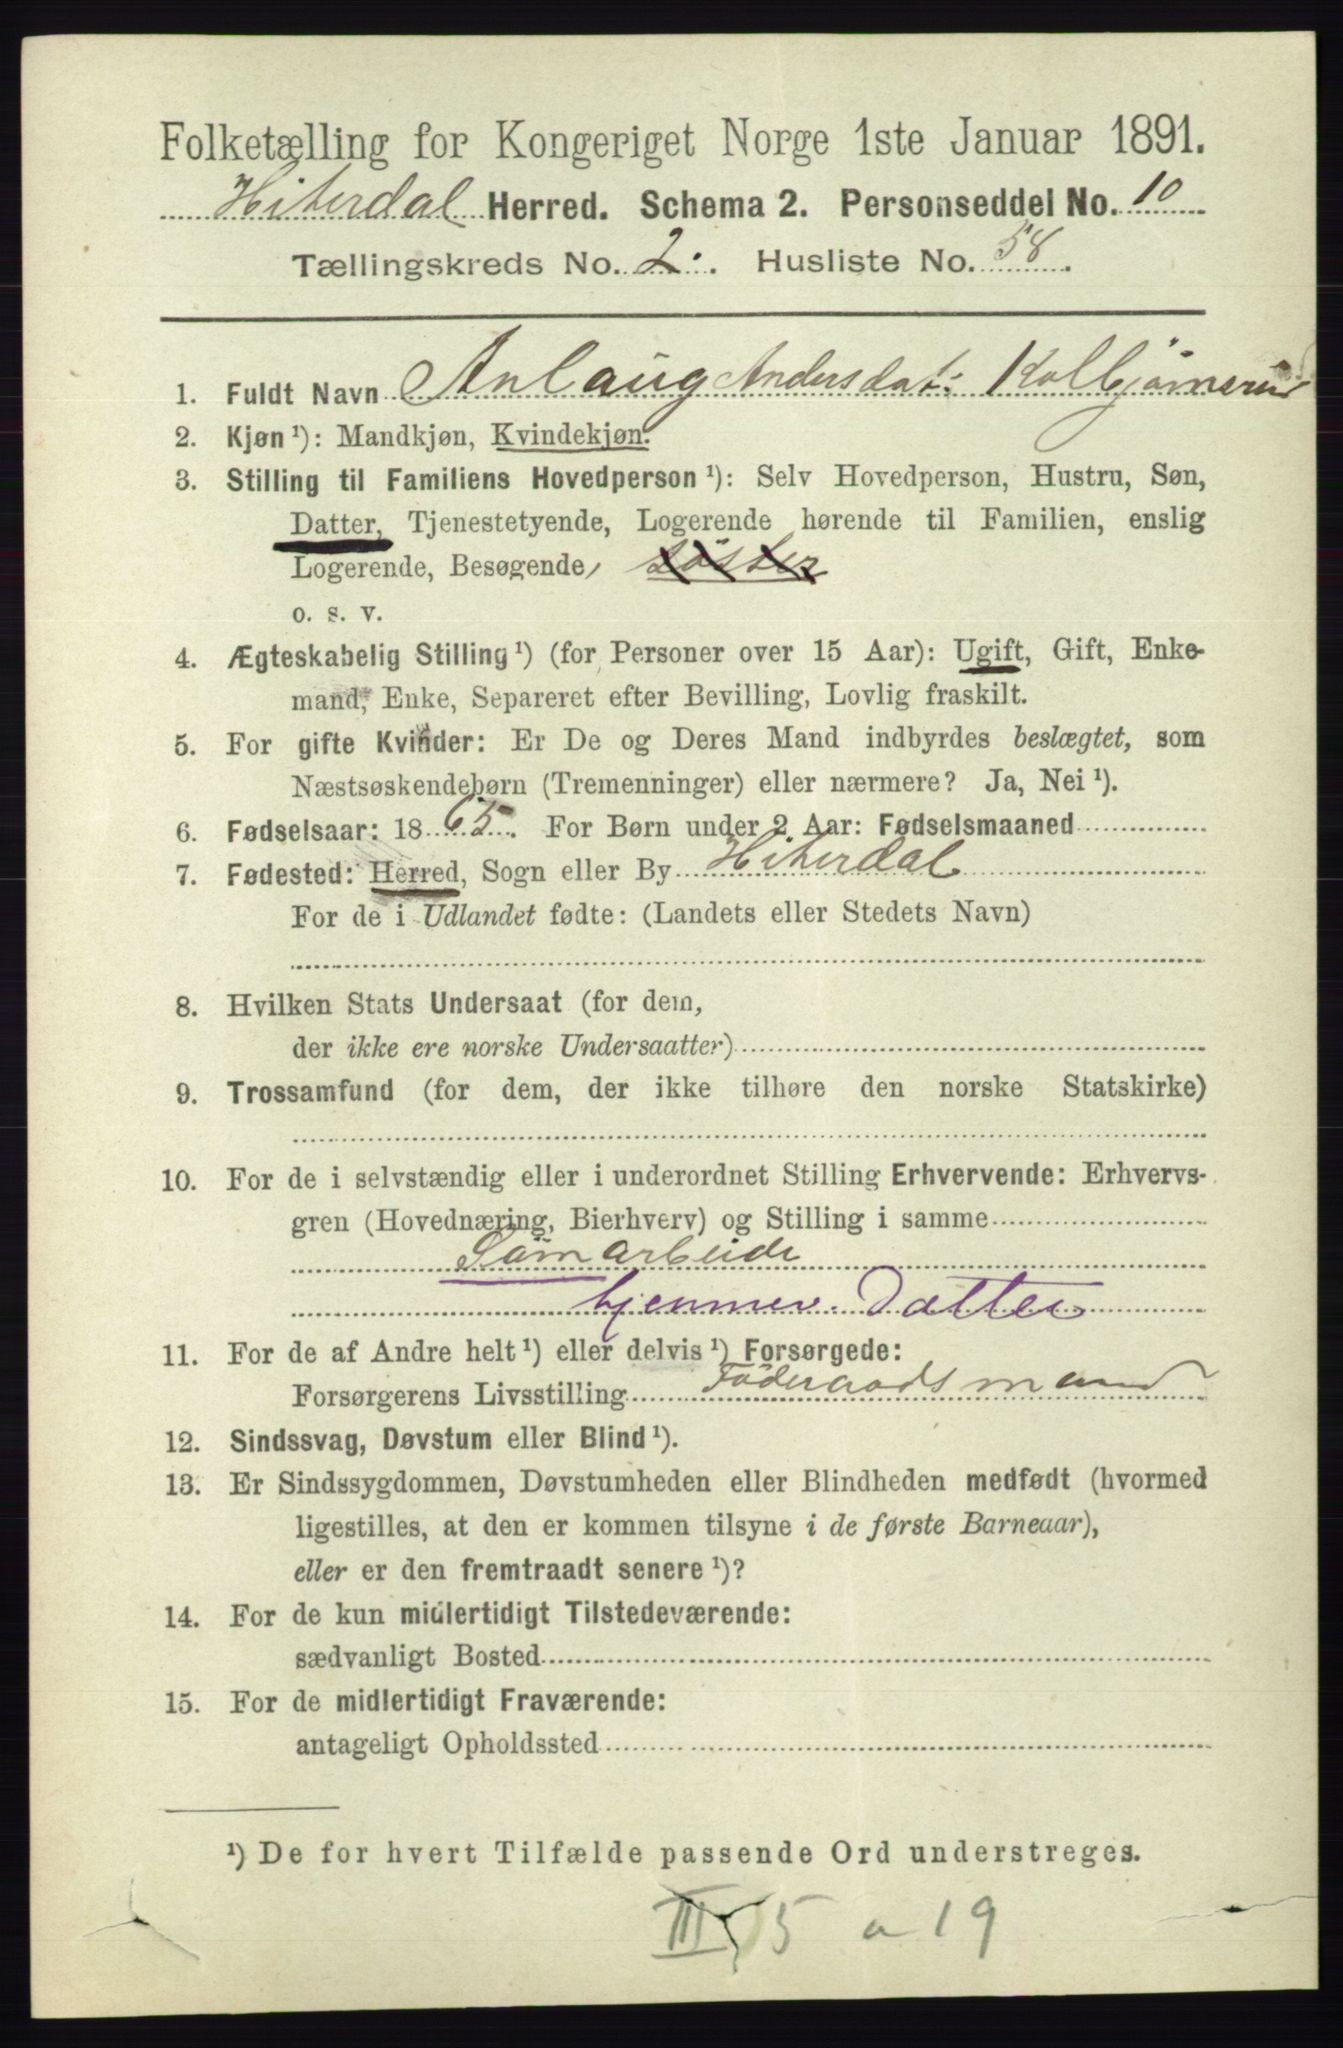 Folketælling for Kongeriget Norge 1ste Januar 1891.
Hiterdal Herred. Schema 2. Personseddel No. 10
Tællingskreds No. 2. Husliste No. 58.
1. Fuldt Navn Anlaug Andersdat: Kolbjørnsrud
2. Kjøn ¹): Mandkjøn, Kvindekjøn.
3. Stilling til Familiens Hovedperson ¹): Selv Hovedperson, Hustru, Søn,
Datter, Tjenestetyende, Logerende hørende til Familien, enslig
Logerende, Besøgende, søster
o. s. v.
4. Ægteskabelig Stilling ¹) (for Personer over 15 Aar): Ugift, Gift, Enke-
mand, Enke, Separeret efter Bevilling, Lovlig fraskilt.
5. For gifte Kvinder: Er De og Deres Mand indbyrdes beslægtet, som
Næstsøskendebørn (Tremenninger) eller nærmere? Ja, Nei ¹).
6. Fødselsaar: 1865. For Børn under 2 Aar: Fødselsmaaned
7. Fødested: Herred, Sogn eller By Hiterdal
For de i Udlandet fødte: (Landets eller Stedets Navn)
8. Hvilken Stats Undersaat (for dem,
der ikke ere norske Undersaatter)
9. Trossamfund (for dem, der ikke tilhøre den norske Statskirke)
10. For de i selvstændig eller i underordnet Stilling Erhvervende: Erhvervs-
gren (Hovednæring, Bierhverv) og Stilling i samme
Sömarbeide
hjemmev. Datter
11. For de af Andre helt ¹) eller delvis ¹) Forsørgede:
Forsørgerens Livsstilling Föderaadsmand
12. Sindssvag, Døvstum eller Blind ¹).
13. Er Sindssygdommen, Døvstumheden eller Blindheden medfødt (hvormed
ligestilles, at den er kommen tilsyne i de første Barneaar),
eller er den fremtraadt senere ¹)?
14. For de kun midlertidigt Tilstedeværende:
sædvanligt Bosted
15. For de midlertidigt Fraværende:
antageligt Opholdssted
¹) De for hvert Tilfælde passende Ord understreges.
III 5 a 19